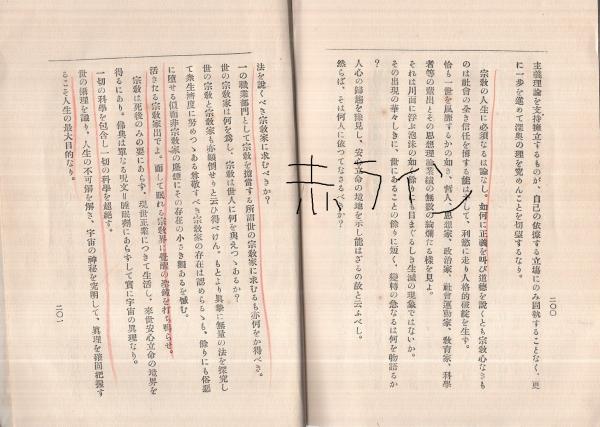 主義理論を支持擁立するものが、自己の依據する立場にのみ固執することなく、更
に一步を進めて深奥の理を究めんことを切望するなり。
宗敎の人生に必須なるは論なし。如何に正義を叫び道德を說くとも宗敎心なきも
のは社會の全き信任を博する能はずして、利慾に走り人格的破綻を生ず。
恰も一世を風靡するかの如き、哲人、思想家、政治家、社會運動家、敎育家、科學
者等の輩出とその思想理論業績の無數の絢爛たる樣を見よ。
それは川面に浮ぶ泡沫の如く餘りにも目まぐるしき生滅の現象ではないか。
その出現の華々しきに、世にあることの餘りに短く、變轉の急なるは何を物語るか
?
人心の歸趨を豫見し、安心立命の境地を示し能はざるの故と云ふべし。
然らば、そは何人に依つてなさるべきか?
二〇〇
赤ライン
法を說くべき宗敎家に求むべきか?
一の職業部門として宗敎を擔當する所謂世の宗敎家に求むるも亦何をか得べき。
世の宗敎家は何を爲し、宗敎は世人に何を與えつゝあるか?
世の宗敎と宗敎家も亦顚倒せりと云ひ得べけん。もとより眞摯に無量の法を探究し
て衆生濟度に努めつゝある尊敬すべき宗敎家の存在は認めらるゝも、餘りにも俗惡
に墮せる似而非宗敎家の塵標にその存在の小さき類あるを憾む。
活きたる宗敎家出でよ。而して眠れる宗敎界に覺醒の巨鐘を打ち鳴らせ。
宗敎は死後のみの要にあらず。現世正業につきて生活し、來世安心立命の境界を
得るにあり。佛典は單なる呪文=睡眠劑にあらずして實に宇宙の眞理なり。
一切の科學を包含し一切の科學を超絕す。
世の備理を識り、人生の不可解を解き、宇宙の神秘を究明して、眞理を確固把握す
るこそ人生の最大目的なり。
二〇一